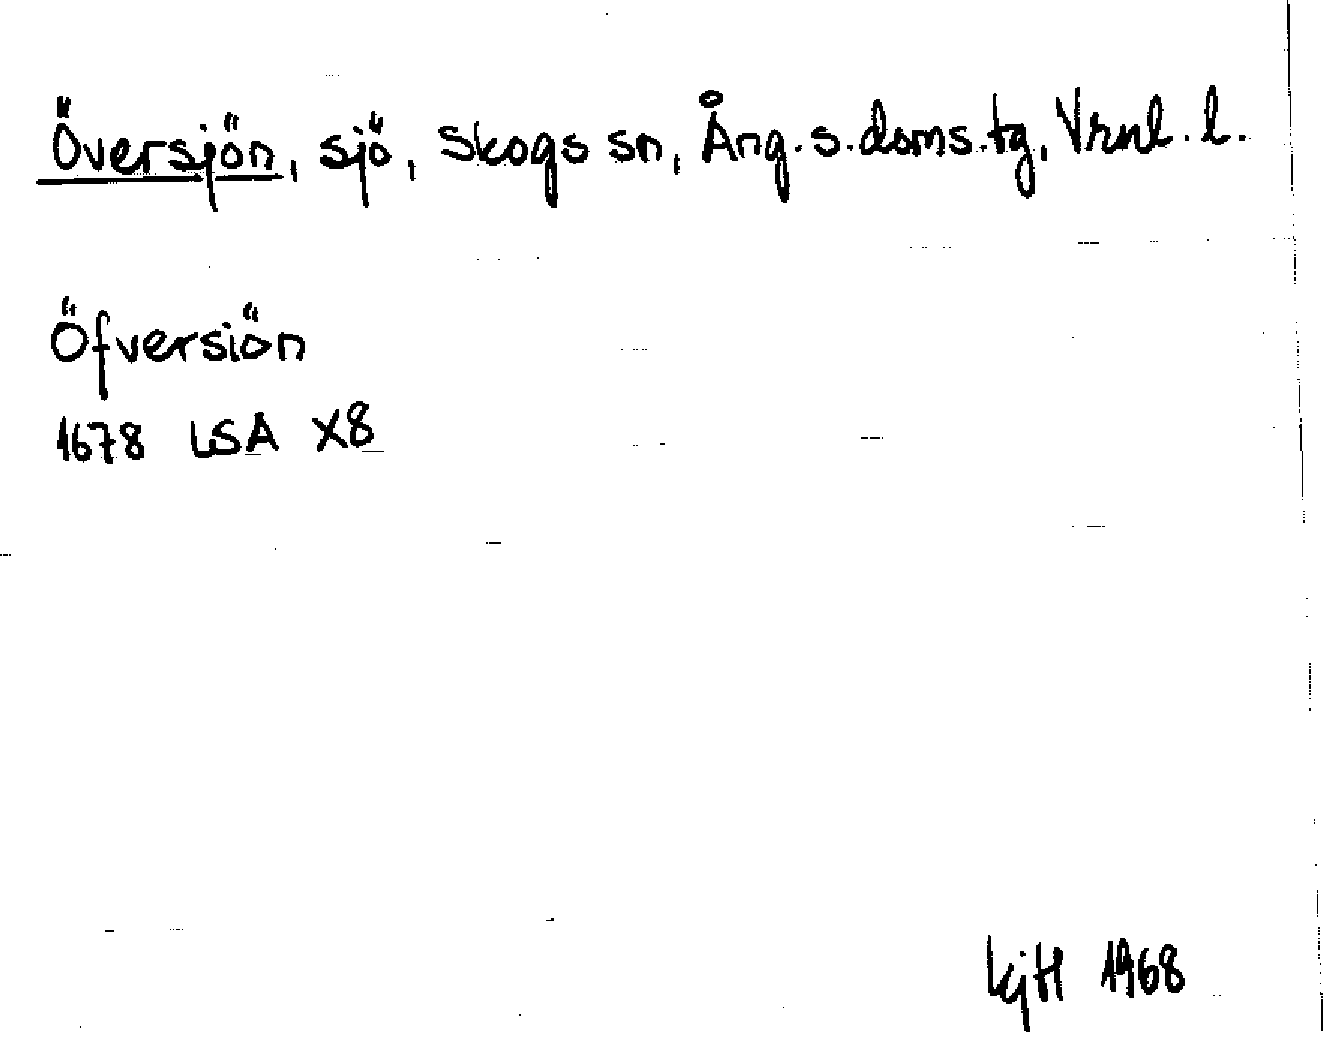 Översjön, sjö, Skogs sn, Ång.s.doms.tg, Vrnl. l.
Öfversiön
1678 LSA X8
KjH 1968